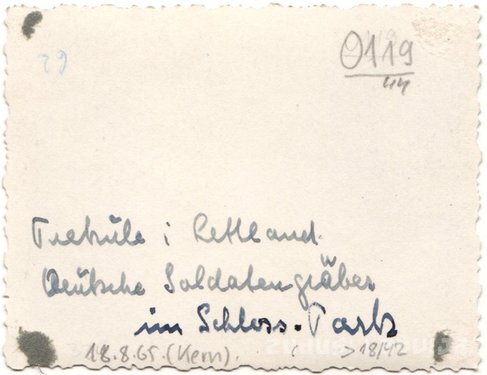 0119
44
29
Prekule i Lettland.
Deutsche Soldatengräber
im Schloss-Park
18.8.65. (Kern). > 18/42